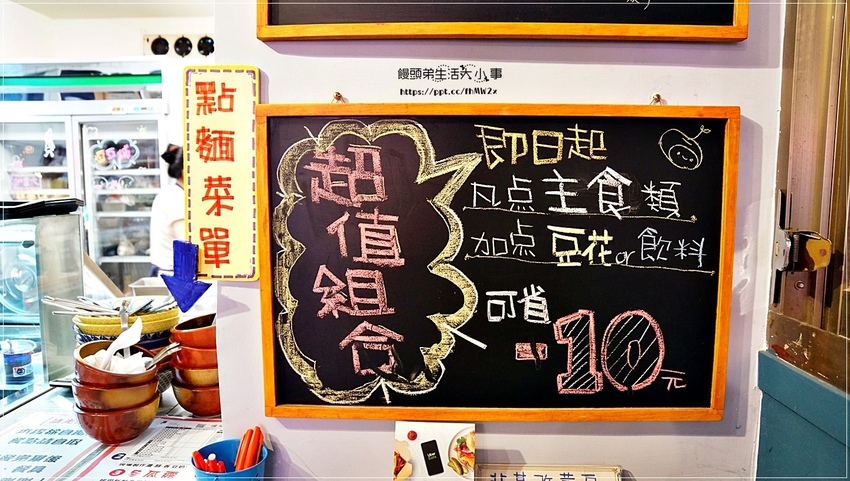 饅頭弟生活大小事
https://ppt.cc/fhMW2x
點麵菜單
超值組合
即日起
凡点主食類
加点豆花or飲料
可省
10元